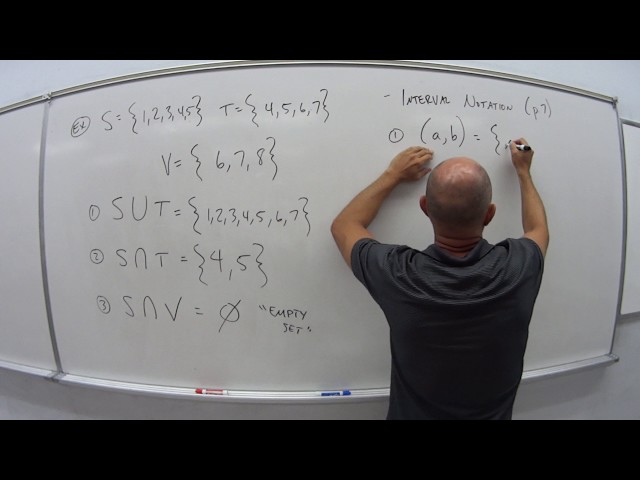 Ex S = {1,2,3,4,5} T = {4,5,6,7}
V = {6,7,8}
① S ∪ T = {1,2,3,4,5,6,7}
② S ∩ T = {4,5}
③ S ∩ V = ∅ "EMPTY
SET"
- INTERVAL NOTATION (p7)
① (a,b) = {